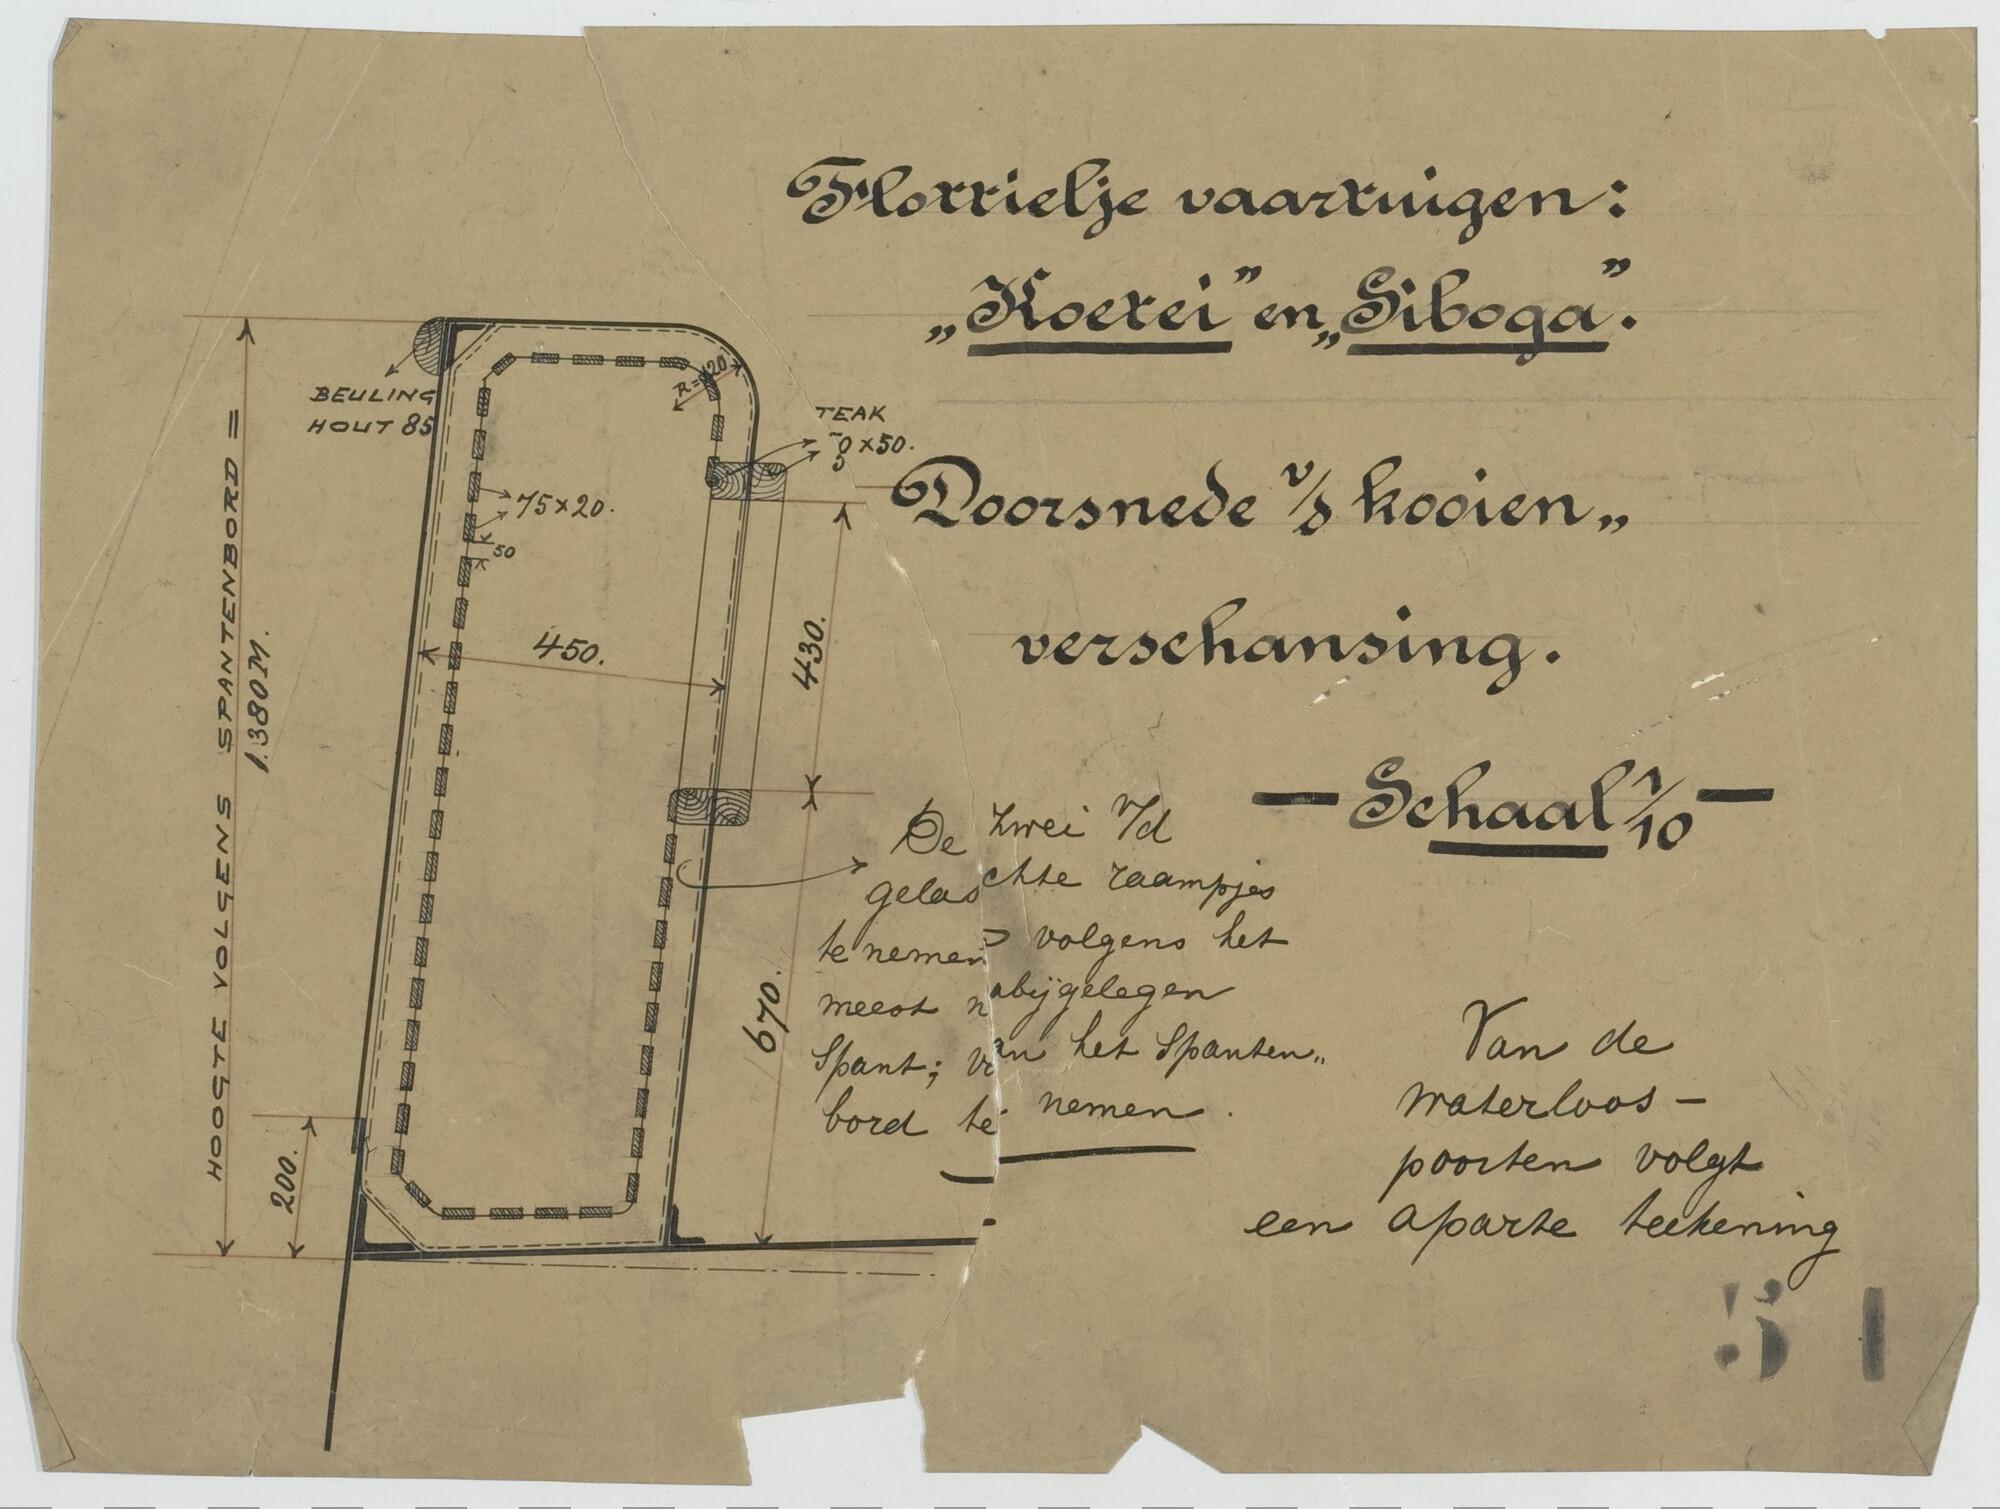 Flottielje vaartuigen:
„Koetei” en „Siboga”.
Doorsnede v/d kooien„
verschansing.
— Schaal 1/10 —
BEULING
HOUT 85
TEAK
x50.
R=120
75x20.
50
450.
430.
HOOGTE VOLGENS SPANTENBORD =
1.380M.
200.
670.
De zwei v/d
gelaschte raampjes
te nemen volgens het
meest nabijgelegen
Spant; van het Spanten„
bord te nemen.
Van de
waterloos-
poorten volgt
een aparte teekening
51